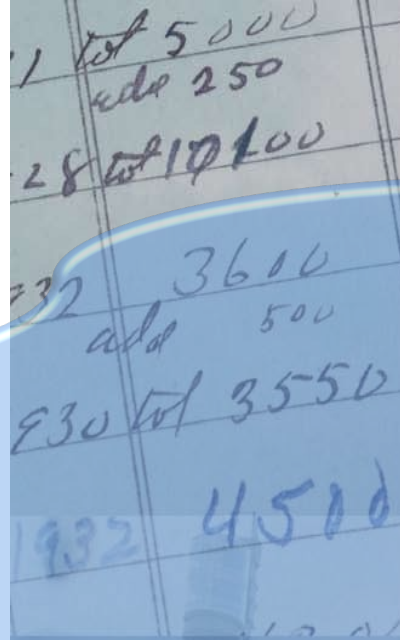 1 tot 5000
add 250
28 tot 10100
32 3600
add 500
930 tot 3550
1932 4500